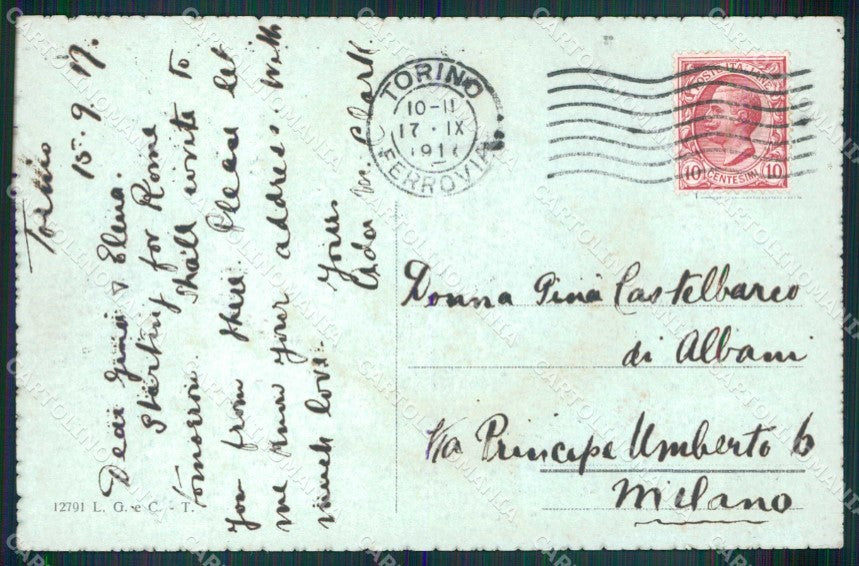 Torino
15-9.17.
Dear Gina & Elena.
Starting for Rome
tomorrow. Shall write to
you from there. Please let
me know your address. With
much love.
Yours
Ada
12791 L. G. e C. - T.
TORINO
10-11
17·IX
FERROVIA
POSTE ITALIANE
10 CENTESIMI 10
Donna Gina Castelbarco
di Albani
Via Principe Umberto 6
Milano
CARTOLINOMANIA